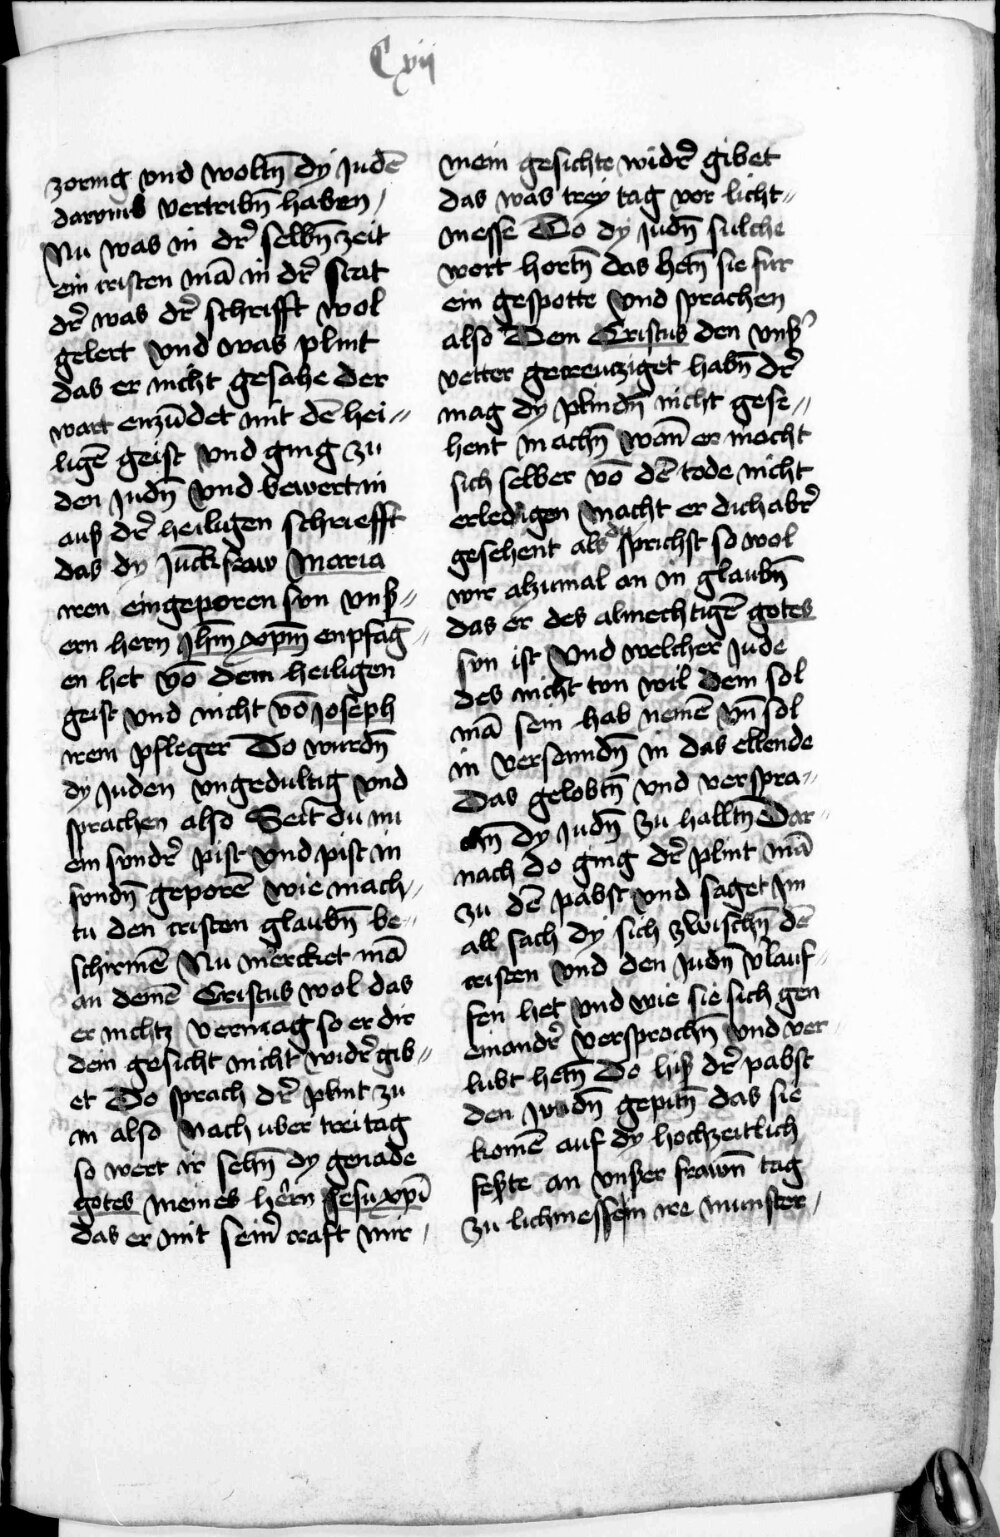 Cxvij
zornig vnd woltn̄ dy Judē
darvmb vertribn̄ haben /
Nu was in dr̄ selbn̄ zeit
ein cristen mā in dr̄ stat
dr̄ was dr̄ schrifft wol
gelert vnd was plint
das er nicht gesahe der
wart enzūdet mit dē hei〃
ligē geist vnd ging zu
den Judn̄ vnd bewert in
auß dr̄ heiligen schriefft
das dy Jūckfraw Maria
iren eingeporen sun vnß〃
ern hern Jhm̄ xpm̄ enpfāg〃
en het vō dem heiligen
geist vnd nicht vō Joseph
irem pfleger Do wurdn̄
dy Juden vngedultig vnd
sprachen also Seit du nu
ein sundr̄ pist vnd pist in
sundn̄ geporē wie mach〃
tu den cristen glaubn̄ be〃
schirmē Nu mercket mā
an deinē Cristus wol das
er nichtz vermag so er dir
dein gesicht nicht widr̄ gib〃
et Do sprach dr̄ plint zu
in also Nach uber trei tag
so wert ir sehn̄ dy genade
gotes meines hern Jesu xpī
das er mit seinr̄ craft mir /
mein gesichte widr̄ gibet
das was trey tag vor licht〃
messe Do dy Judn̄ sulche
wort hortn̄ das hetn̄ sie fur
ein gespotte vnd sprachen
also Dem Cristus den vnßr̄
vetter gecreutziget habn̄ dr̄
mag dy plindn̄ nicht gese〃
hent machn̄ wan̄ er mocht
sich selber vō dē tode nicht
erledigen Macht er dich abr̄
gesehent als du sprichst so wol
wir alzumal an in glaubn̄
das er des almechtigē gotes
sun ist vnd welcher Jude
des nicht tun wil dem sol
mā sein hab nemē vn̄ sol
in versenndn̄ in das ellende
Das gelobtn̄ vnd verspra〃
chn̄ dy Judn̄ zu halltn̄ Dar〃
nach do ging dr̄ plint mā
zu dē pabst vnd saget Im
all sach dy sich zwischn̄ dē
cristen vnd den Judn̄ v̄lauf〃
fen het vnd wie sie sich gen
einandr̄ versprochn̄ vnd ver〃
lubt hetn̄ Do hiß dr̄ pabst
den Judn̄ gepitn̄ das sie
komē auf dy hochzeitlich
feste an vnßer frawn̄ tag
zu lichmessen ire munster /